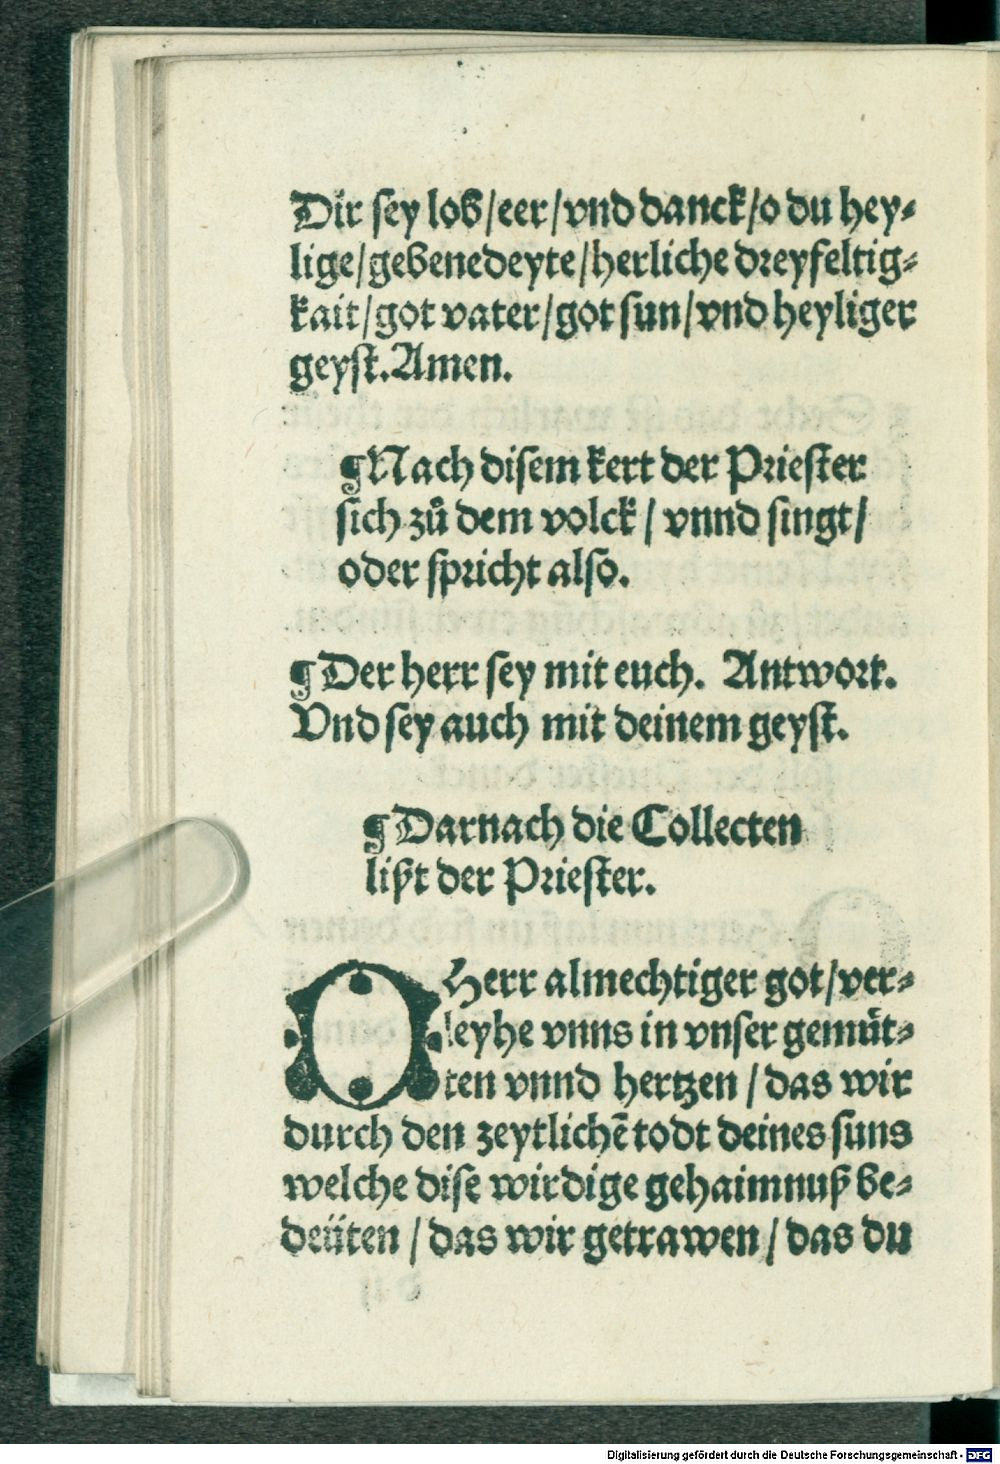 Dir sey lob/eer/vnd danck/o du hey⸗
lige/gebenedeyte/herliche dreyfeltig⸗
kait/got vater/got sun/vnd heyliger
geyst. Amen.
¶Nach disem kert der Priester
sich zů dem volck / vnnd singt/
oder spricht also.
¶Der herr sey mit euch. Antwort.
Vnd sey auch mit deinem geyst.
¶Darnach die Collecten
lißt der Priester.
O Herr almechtiger got/ver⸗
leyhe vnns in vnser gemüt⸗
ten vnnd hertzen / das wir
durch den zeytlichē todt deines suns
welche dise wirdige gehaimnuß be⸗
deüten / das wir getrawen / das du
Digitalisierung gefördert durch die Deutsche Forschungsgemeinschaft - DFG